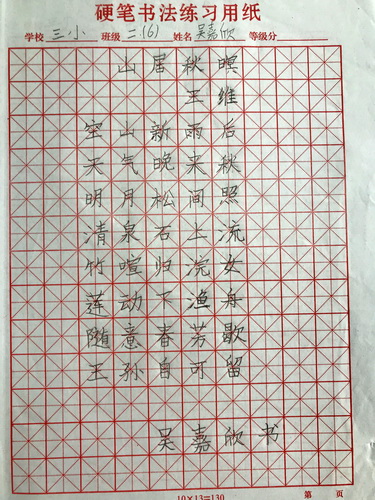 硬笔书法练习用纸
学校 三小 班级 二(6) 姓名 吴嘉欣 等级分
山居秋暝
王维
空山新雨后
天气晚来秋
明月松间照
清泉石上流
竹喧归浣女
莲动下渔舟
随意春芳歇
王孙自可留
吴嘉欣书
10×13=130 第 页